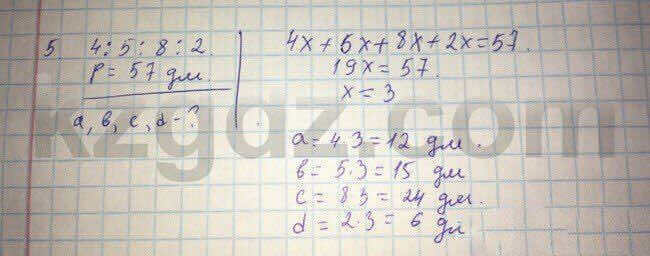 5. 4 : 5 : 8 : 2.
P = 57 дм.
a, b, c, d - ?
4x + 5x + 8x + 2x = 57.
19x = 57.
x = 3
a = 4·3 = 12 дм.
b = 5·3 = 15 дм
c = 8·3 = 24 дм.
d = 2·3 = 6 дм
kzgdz.com